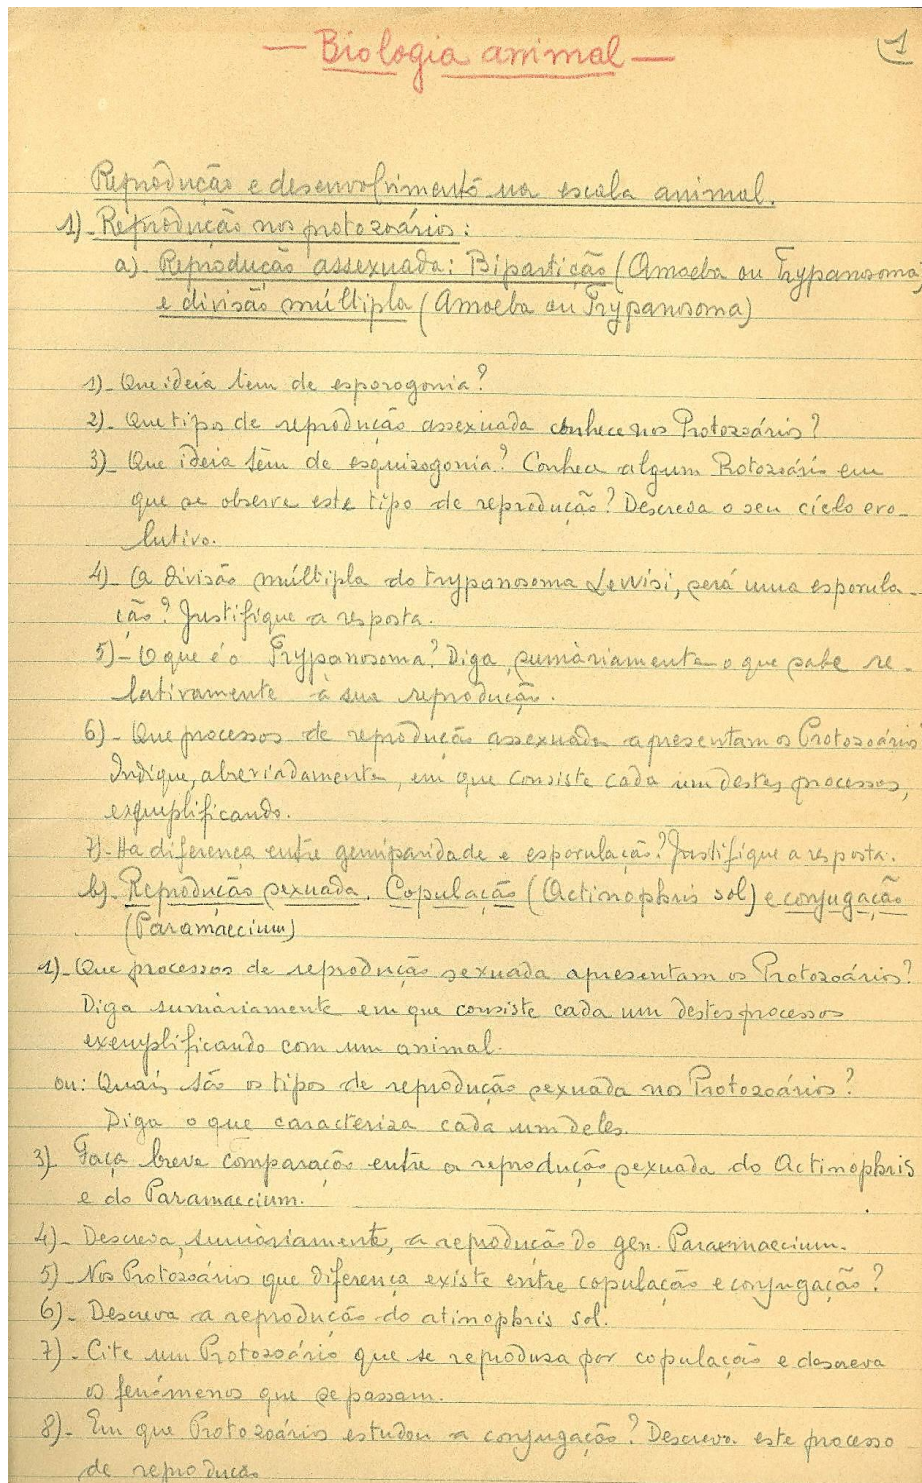 — Biologia animal —
1
Reprodução e desenvolvimento na escala animal.
1)- Reprodução nos protozoários:
a)- Reprodução assexuada: Bipartição (Amoeba ou Trypanosoma)
e divisão múltipla (Amoeba ou Trypanosoma)
1)- Que ideia tem de esporogonia?
2)- Que tipos de reprodução assexuada conhece nos Protozoários?
3)- Que ideia tem de esquizogonia? Conhece algum Protozoário em
que se observe este tipo de reprodução? Descreva o seu ciclo evo-
lutivo.
4)- A divisão múltipla do trypanosoma Lewisi, será uma esporula-
ção? Justifique a resposta.
5)- O que é o Trypanosoma? Diga, sumàriamente o que sabe re-
lativamente à sua reprodução.
6)- Que processos de reprodução assexuada apresentam os Protozoários
Indique, abreviadamente, em que consiste cada um destes processos,
exemplificando.
7)- Ha diferença entre gemiparidade e esporulação? Justifique a resposta.
b)- Reprodução sexuada. Copulação (Actinophris sol) e conjugação
(Paramaecium)
1)- Que processos de reprodução sexuada apresentam os Protozoários?
Diga sumàriamente em que consiste cada um destes processos
exemplificando com um animal.
ou: Quais são os tipos de reprodução sexuada nos Protozoários?
Diga o que caracteriza cada um deles.
3)- Faça breve comparação entre a reprodução sexuada do Actinophris
e do Paramaecium.
4)- Descreva, sumàriamente, a reprodução do gen. Paramaecium.
5)- Nos Protozoários que diferença existe entre copulação e conjugação?
6)- Descreva a reprodução do atinophris sol.
7)- Cite um Protozoário que se reproduza por copulação e descreva
os fenómenos que se passam.
8)- Em que Protozoários estudou a conjugação? Descreva este processo
de reprodução